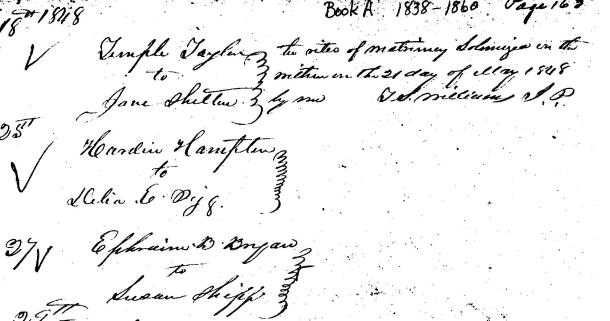 Book A 1838-1860 Page 16
18th 1848
Temple Taylor the rites of matrimony Solemnized in the
to within on the 21 day of May 1848
Jane Shelton by me T. S. Williams J. P.
25th
Hardin Hampton
to
Delia E.
27
Ephraim B. Bryan
to
Susan Shipp